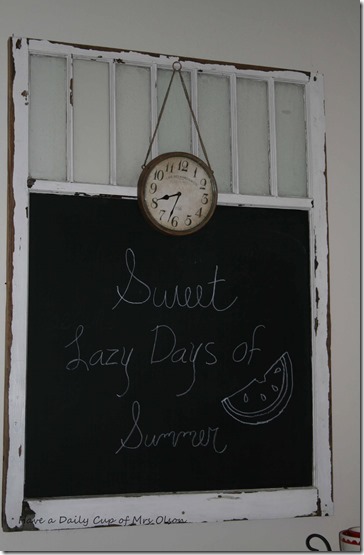 12
11
1
10
2
9
3
8
4
7
5
6
Sweet
Lazy Days of
Summer
Have a Daily Cup of Mrs. Olson